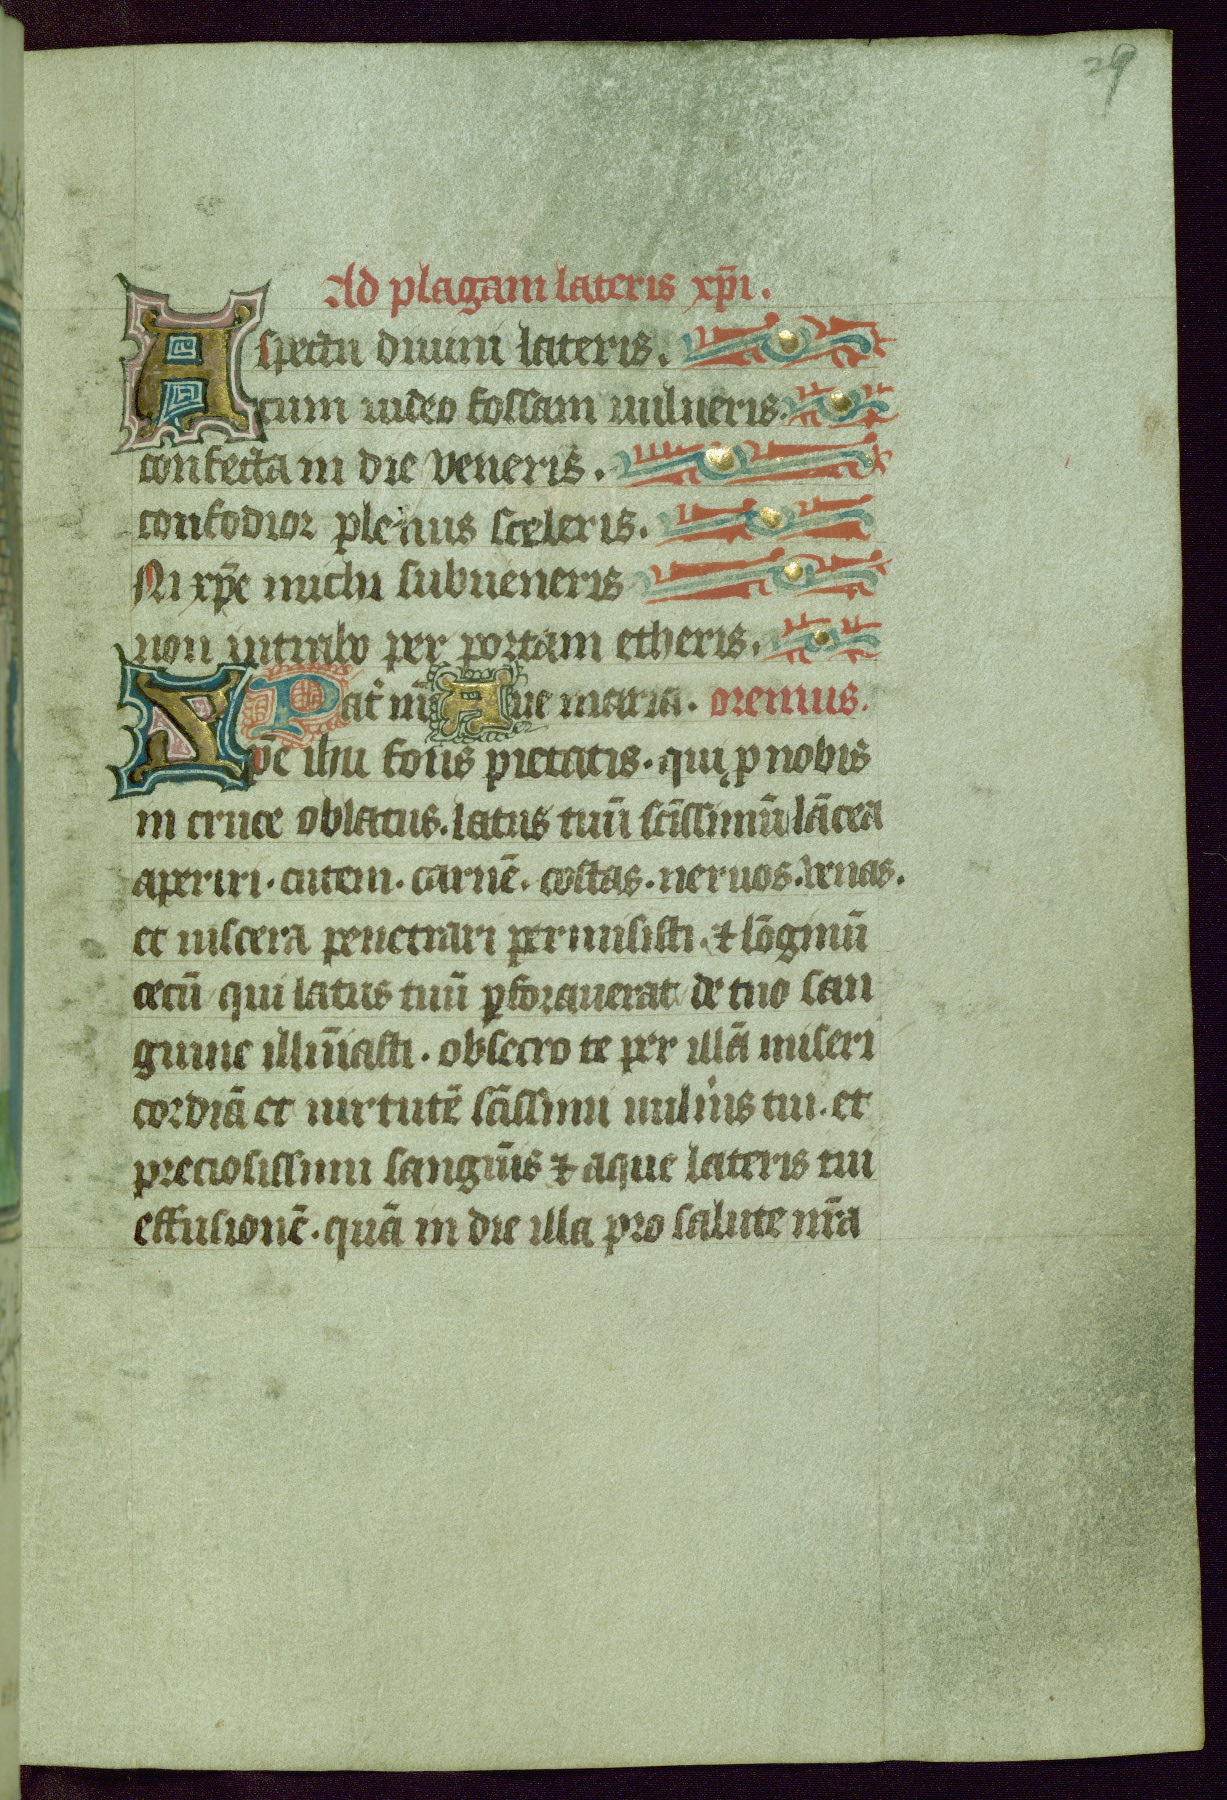 29
Ad plagam lateris xp̄i.
Aspectu diuini lateris.
cum uideo fossam uulneris.
confectam die veneris.
confodior plenus sceleris.
Ni xp̄e michi subueneris
non intrabo per portam etheris.
Pat̄ nr̄ Aue maria. oremus.
Xp̄e ihu fons pietatis. qui ꝓ nobis
in cruce oblatus. latus tuū sc̄issimū lācea
aperiri. cutem. carnē. costas. neruos. venas.
et uiscera penetrari permisisti. ⁊ lōginū
cecū qui latus tuū ꝑforauerat de tuo san
guine illūīasti. obsecro te per illā miseri
cordiā et uirtutē sc̄issimi uulīis tui. et
preciosissimi sanguīs ⁊ aque lateris tui
effusionē. quā in die illa pro salute nr̄a